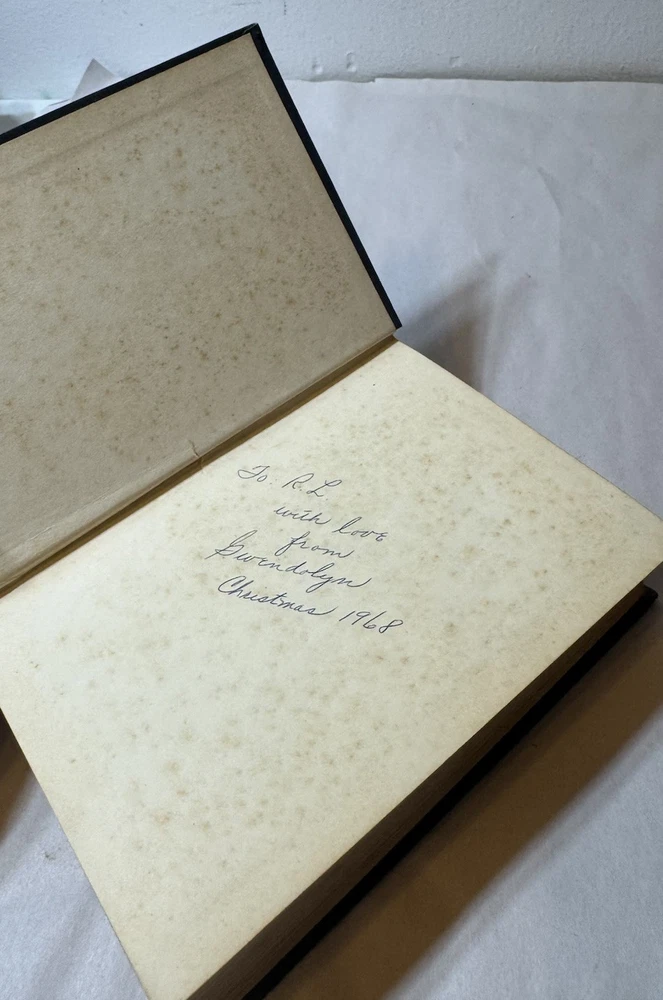 To: R.L.
with love
from
Gwendolyn
Christmas 1968